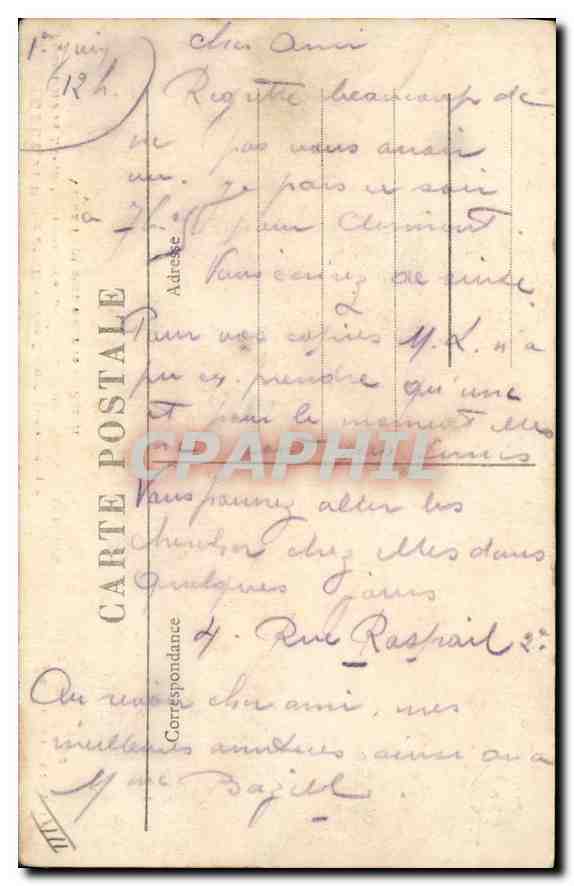 1er juin
12 h.
Cher Ami
Regrette beaucoup de
ne pas vous avoir
vu. Je pars ce soir
à 7h pour Clermont.
Vous écrirez de suite.
Pour vos copies M. L. n'a
pu en prendre qu'une
et pour le moment
Vous pourrez aller les
chercher chez dans
quelques jours
4. Rue Raspail 2e
Au revoir cher ami, mes
meilleures amitiés ainsi qu'à
Mme
CARTE POSTALE
Correspondance
Adresse
CPARAPHIL